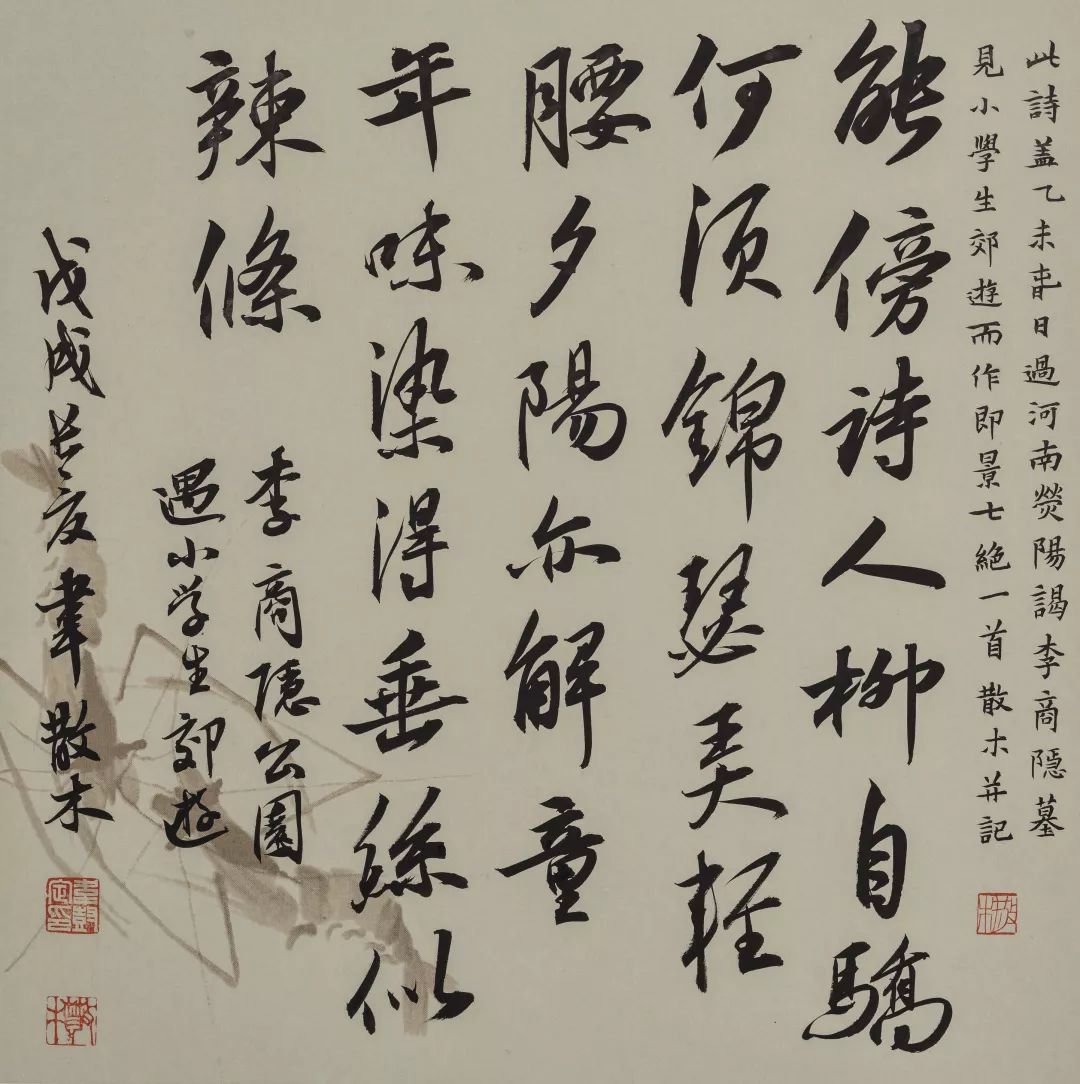 此詩蓋乙未春日過河南熒陽謁李商隱墓
見小學生郊遊而作即景七絕一首散木并記
能傍詩人柳自驕
何須錦瑟美輕
腰夕陽亦解童
年味染得垂絲似
辣條
李商隱公園
遇小学生郊遊
戊戌長夏韋散木
散木